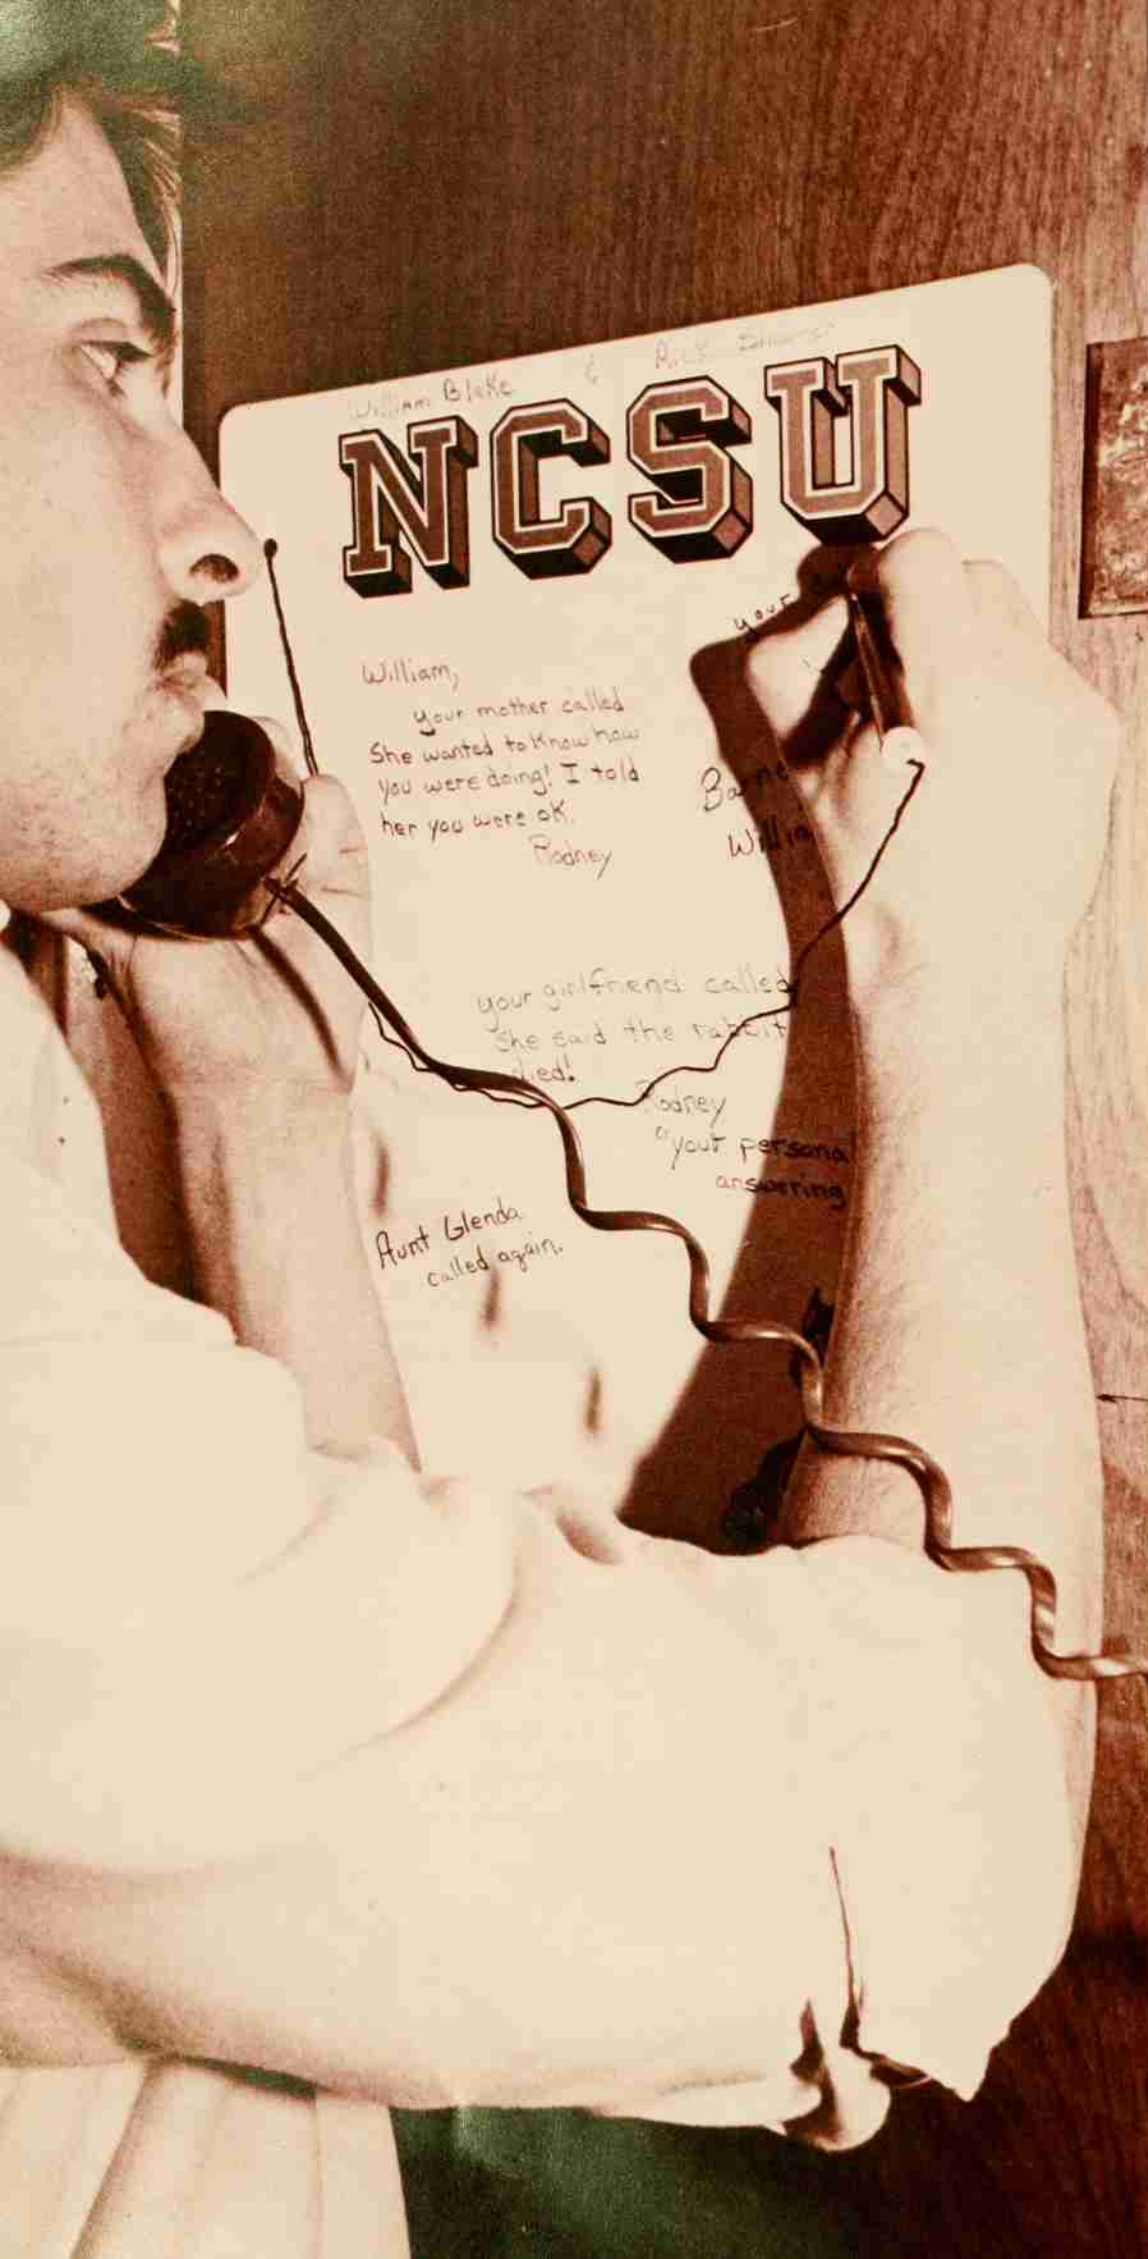 William Blake & Rick
NCSU
William,
your mother called
She wanted to know how
you were doing! I told
her you were ok.
Rodney
your
your girlfriend called
She said the rabbit
died!
Rodney
"your personal
answering
Aunt Glenda
called again.